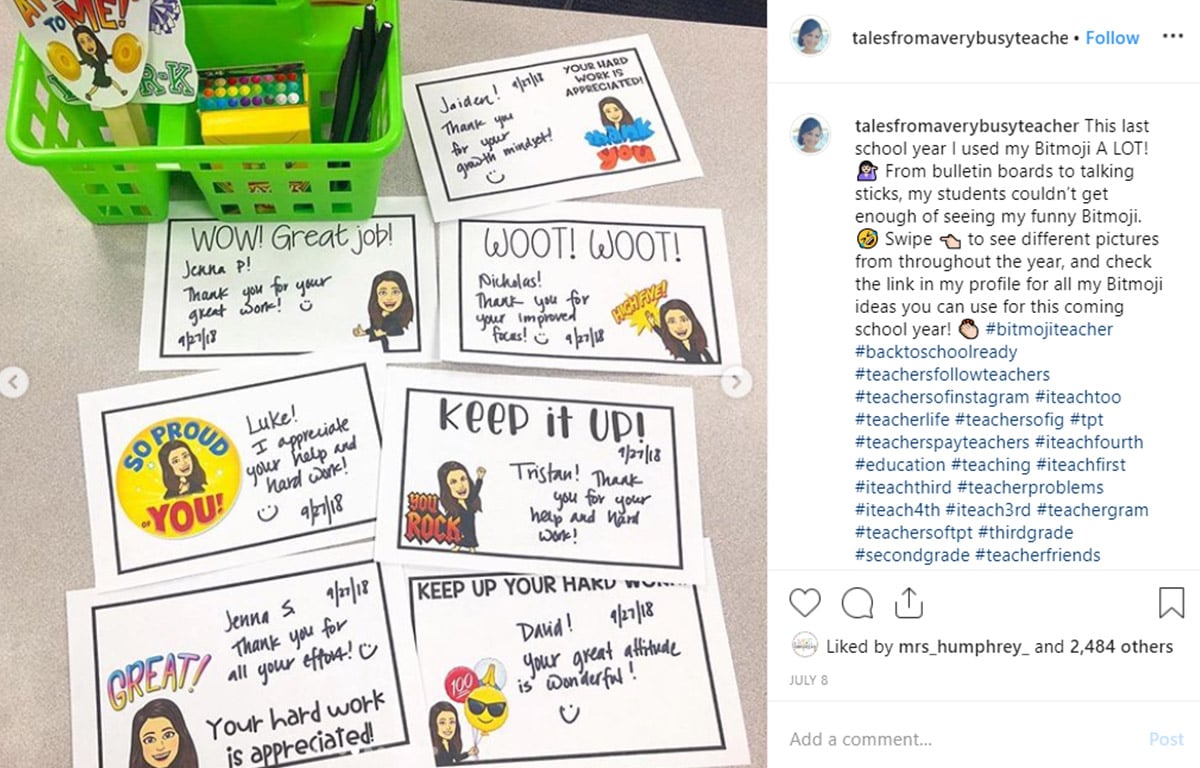 TO ME!
R-K
Jaiden! 9/27/18
Thank you
for your
growth mindset!
YOUR HARD
WORK IS
APPRECIATED!
thank
you
WOW! Great job!
Jenna P!
Thank you for your
great work!
9/27/18
WOOT! WOOT!
Nicholas!
Thank you for
your improved
focus! 9/27/18
HIGH FIVE!
SO PROUD
OF YOU!
Luke!
I appreciate
your help and
hard work!
9/27/18
KEEP it UP!
9/27/18
Tristan! Thank
you for your
help and hard
work!
YOU
ROCK
Jenna S. 9/27/18
Thank you for
all your effort!
GREAT!
Your hard work
is appreciated!
KEEP UP YOUR HARD
David! 9/27/18
your great attitude
is wonderful!
100
talesfromaverybusyteache • Follow
talesfromaverybusyteacher This last
school year I used my Bitmoji A LOT!
🤷🏻‍♀️ From bulletin boards to talking
sticks, my students couldn’t get
enough of seeing my funny Bitmoji.
🤣 Swipe 👈🏻 to see different pictures
from throughout the year, and check
the link in my profile for all my Bitmoji
ideas you can use for this coming
school year! 👏🏻 #bitmojiteacher
#backtoschoolready
#teachersfollowteachers
#teachersofinstagram #iteachtoo
#teacherlife #teachersofig #tpt
#teacherspayteachers #iteachfourth
#education #teaching #iteachfirst
#iteachthird #teacherproblems
#iteach4th #iteach3rd #teachergram
#teachersoftpt #thirdgrade
#secondgrade #teacherfriends
Liked by mrs_humphrey_ and 2,484 others
JULY 8
Add a comment... Post